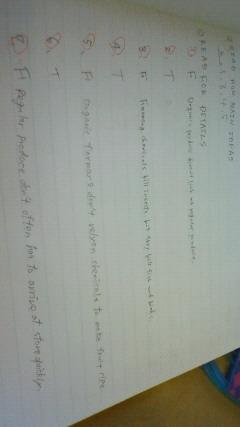 READ FOR MAIN IDEAS
2. 3. 4. 5
READ FOR DETAILS
1. F Organic produce doesn't look like regular produce.
2. T
3. F Farming chemicals kill insects, but they kill fish and birds.
4. T
5. F Organic farmers don't chemicals to make fruit ripe
6. T
7. F Regular produce don't often has to arrive at store quickly